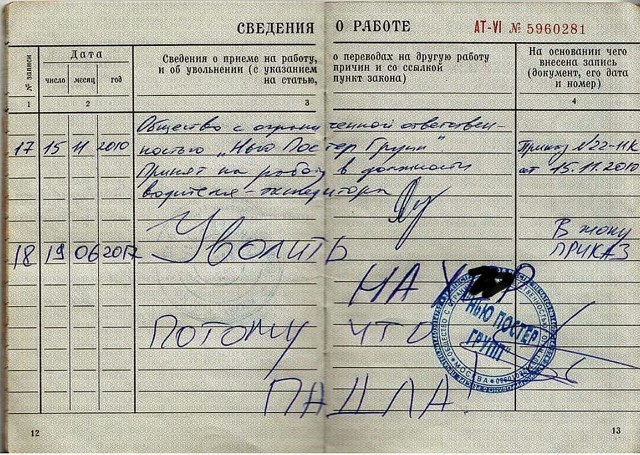 СВЕДЕНИЯ О РАБОТЕ
AT-VI № 5960281
№ записи
Дата
число месяц год
Сведения о приеме на работу, о переводах на другую работу
и об увольнении (с указанием причин и со ссылкой
на статью, пункт закона)
На основании чего
внесена запись
(документ, его дата
и номер)
1 2 3 4
Общество с ограниченной ответствен-
17 15 11 2010 ностью "Нью Постер Групп" Приказ N22-11К
Принят на работу в должности от 15.11.2010
водителя-экспедитора
В жопу
18 19 06 2017 Уволить ПРИКАЗ
НА
ПОТОМУ ЧТО
ПАДЛА!
НЬЮ ПОСТЕР
ГРУПП
МОСКВА
12 13